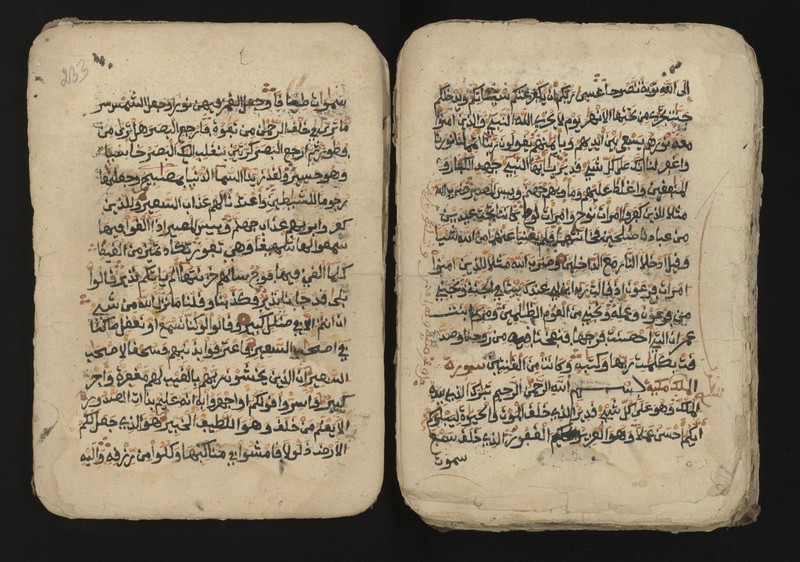 الى الله توبة نصوحا عسى ربكم ان يكفر عنكم سيئاتكم ويدخلكم
جنت تجري من تحتها الانهر يوم لا يخزي الله النبي والذين امنوا
معه نورهم يسعى بين ايديهم وبايمنهم يقولون ربنا اتمم لنا نورنا
واغفر لنا انك على كل شيء قدير يايها النبي جهد الكفار و
المنفقين واغلظ عليهم وماويهم جهنم وبيس المصير ضرب الله
مثلا للذين كفروا امرات نوح وامرات لوط كانتا تحت عبدين
من عبادنا صلحين فخانتهما فلم يغنيا عنهما من الله شيئا
وقيل ادخلا النار مع الداخلين وضرب الله مثلا للذين امنوا
امرات فرعون اذ قالت رب ابن لي عندك بيتا في الجنة ونجني
من فرعون وعمله ونجني من القوم الظلمين ومريم ابنت
عمران التي احصنت فرجها فنفخنا فيه من روحنا وصد
قت بكلمت ربها وكتبه وكانت من القنتين سورة
الملك مكية بسم الله الرحمن الرحيم تبرك الذي بيده
الملك وهو على كل شيء قدير الذي خلق الموت والحيوة ليبلوكم
ايكم احسن عملا وهو العزيز الغفور الذي خلق سبع
سموت
233
سموات طباقا وجعل القمر فيهن نورا وجعل الشمس سر
ما ترى في خلق الرحمن من تفوت فارجع البصر هل ترى من
فطور ثم ارجع البصر كرتين ينقلب اليك البصر خاسيا
وهو حسير ولقد زينا السما الدنيا بمصبيح وجعلنها
رجوما للشيطين واعتدنا لهم عذاب السعير وللذين
كفروا بربهم عذاب جهنم وبيس المصير اذا القوا فيها
سمعوا لها شهيقا وهي تفور تكاد تميز من الغيظ
كلما القي فيها فوج سالهم خزنتها الم ياتكم نذير قالوا
بلى قد جانا نذير فكذبنا وقلنا ما نزل الله من شيء
ان انتم الا في ضلل كبير وقالوا لو كنا نسمع او نعقل ما كنا
في اصحب السعير فاعترفوا بذنبهم فسحقا لاصحب
السعير ان الذين يخشون ربهم بالغيب لهم مغفرة واجر
كبير واسروا قولكم او اجهروا به انه عليم بذات الصدور
الا يعلم من خلق وهو اللطيف الخبير هو الذي جعل لكم
الارض ذلولا فامشوا في مناكبها وكلوا من رزقه واليه